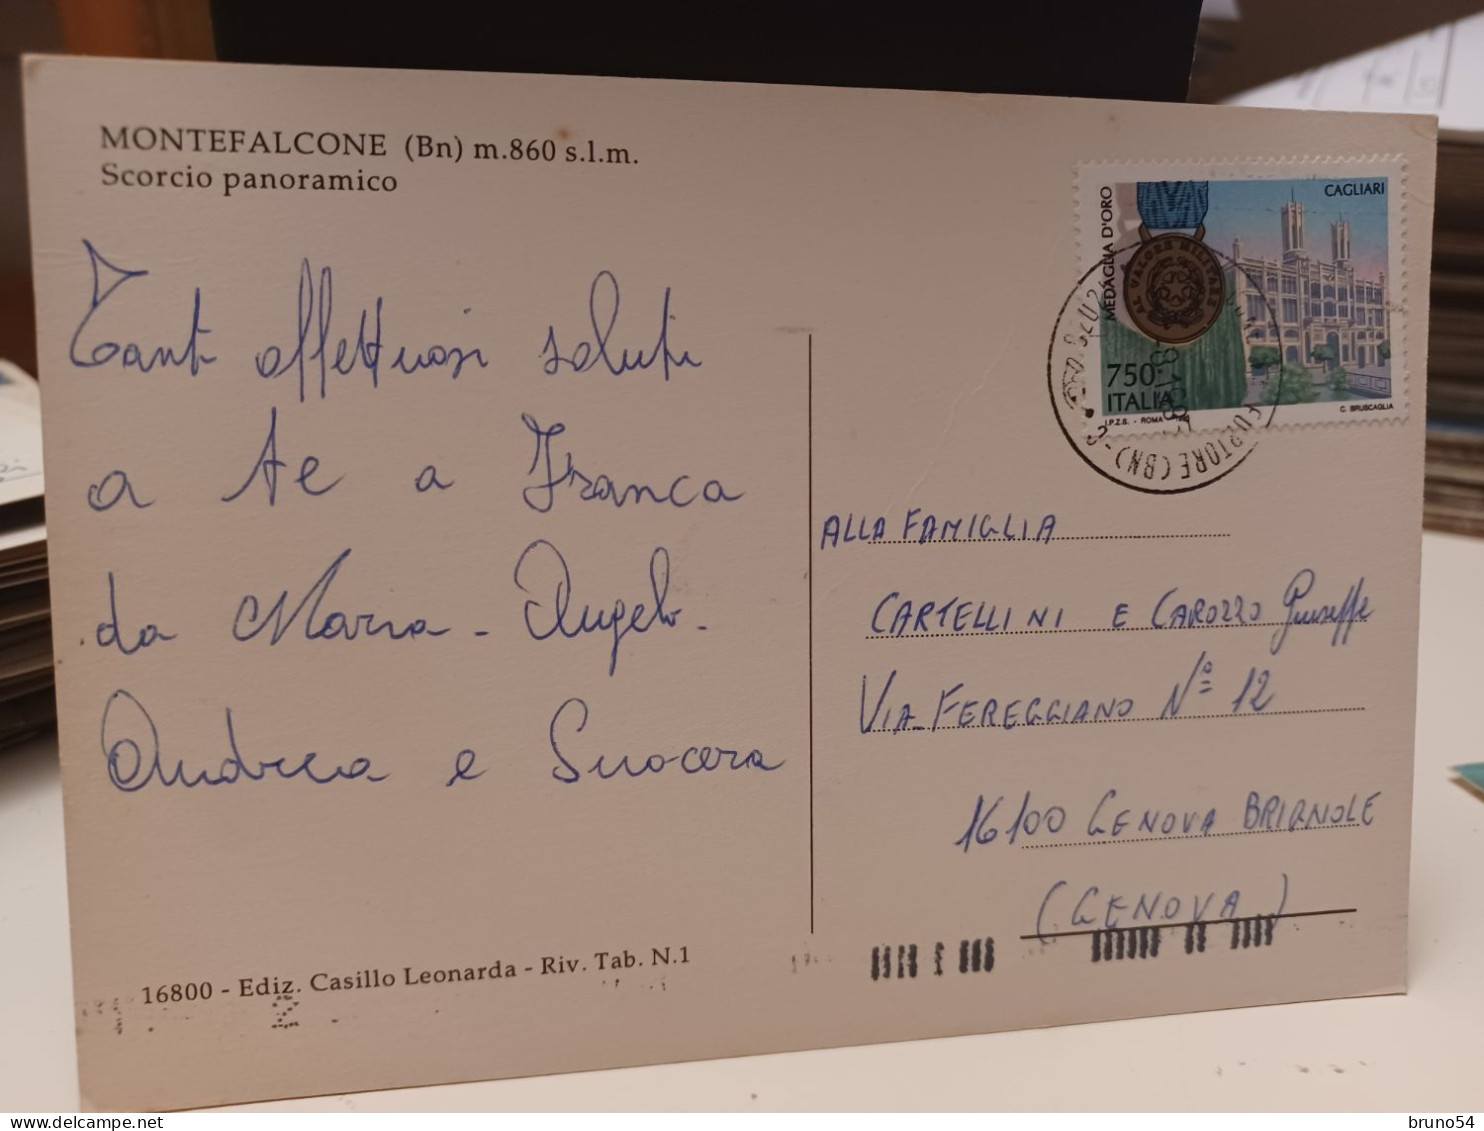 MONTEFALCONE (Bn) m.860 s.l.m.
Scorcio panoramico
Tanti affettuosi saluti
a te a Franca
da Maria - Angelo -
Andrea e Suocera
16800 - Ediz. Casillo Leonarda - Riv. Tab. N.1
MEDAGLIA D'ORO
CAGLIARI
AL VALORE MILITARE
750
ITALIA
I.P.Z.S. - ROMA
C. BRUSCAGLIA
FORTORE (BN)
ALLA FAMIGLIA
CARTELLINI E CAROZZO Giuseppe
VIA FEREGGIANO N° 12
16100 GENOVA BRIGNOLE
(GENOVA)
bruno54